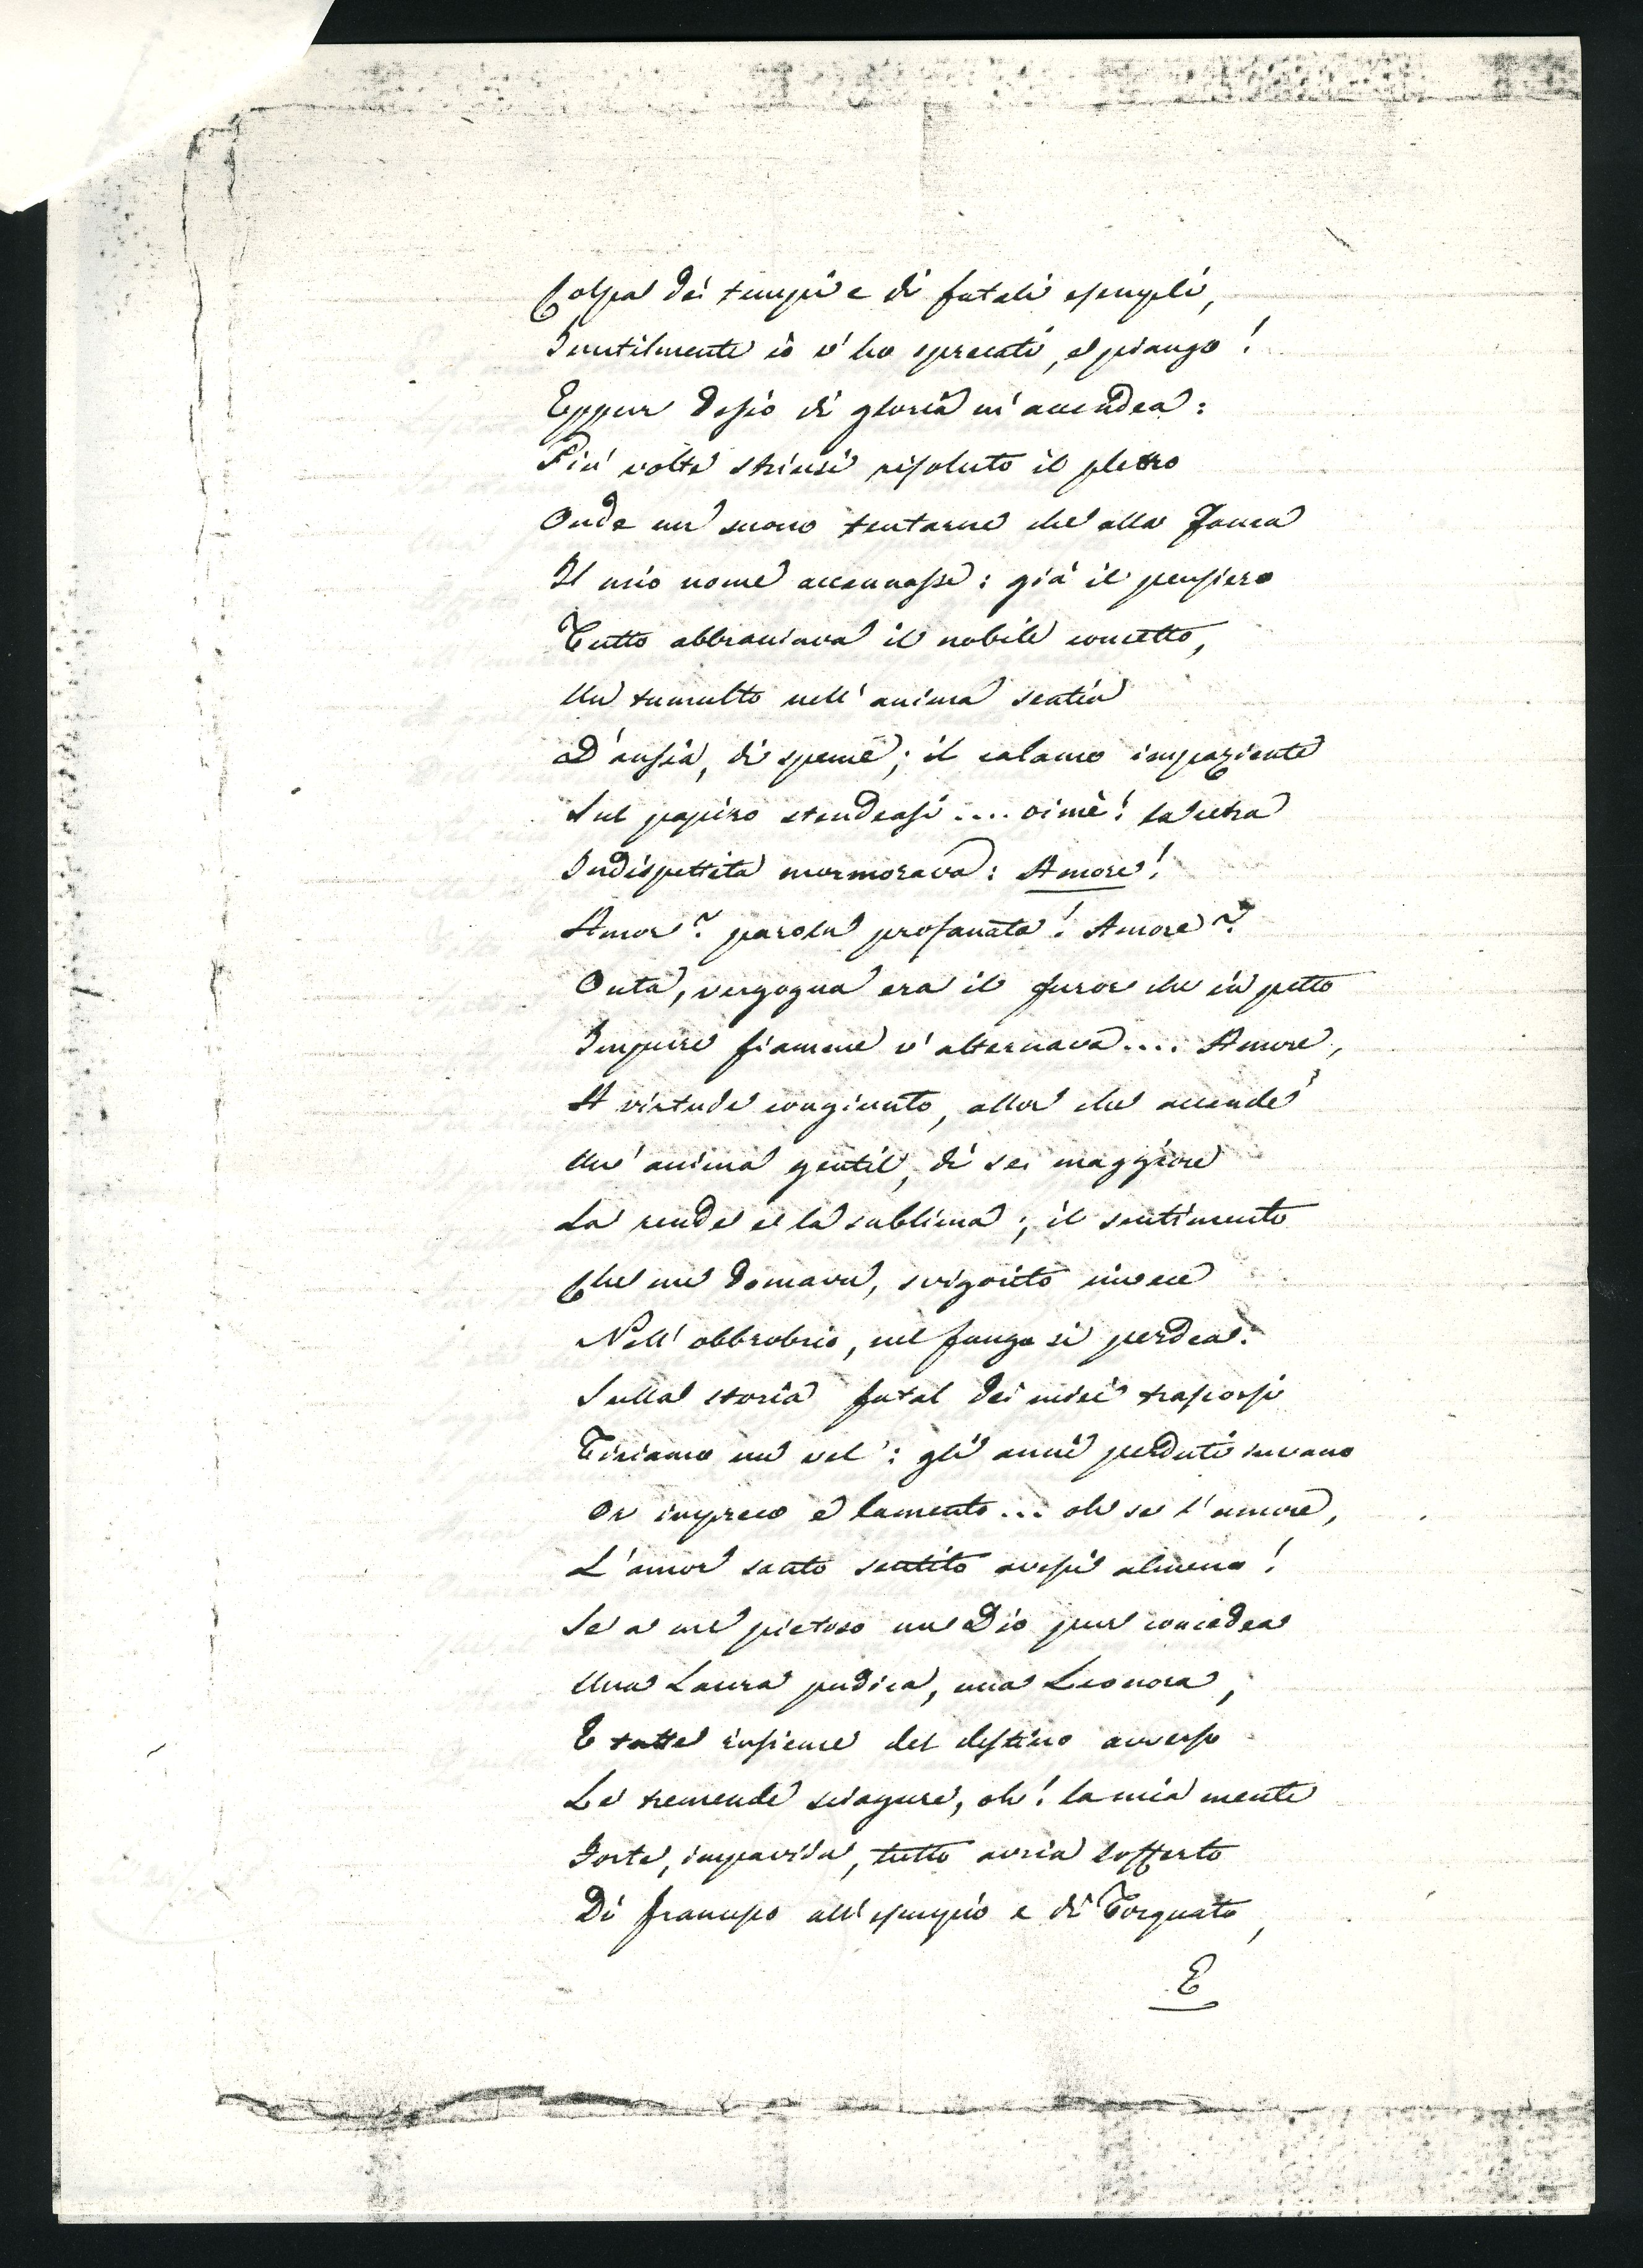 Colpa dei tempi e di fatali esempli,
Inutilmente io v'ho sprecati, e piango!
Eppur desio di gloria m'accendea:
Più volte strinsi risoluto il plettro
Onde un suono tentarne che alla Fama
Il mio nome accennasse: già il pensiero
Tutto abbracciava il nobile concetto,
Un tumulto nell'anima sentia
D'ansia, di speme; il calamo impaziente
Sul papiro stendeasi .... oimè! la cetra
Indispettita mormorava: Amore!
Amor? parola profanata! Amore?
Onta, vergogna era il furor che in petto
Impure fiamme v'alternava .... Amore,
A virtude congiunto, allor che accende
Un'anima gentil, di sei maggiore
La rende e la sublima; il sentimento
Che me domava, svigorito invece
Nell'obbrobrio, nel fango si perdea.
Sulla storia fatal dei miei trascorsi
Tiriamo un vel: gli anni perduti invano
Or impreco e lamento ... oh se l'amore,
L'amor santo sentito avessi almeno!
Se a me pietoso un Dio pur concedea
Una Laura pudica, una Leonora,
E tutte insieme del destino avverso
Le tremende sciagure, oh! la mia mente
Forte, impavida, tutto avria sofferto
Di Francesco all'esempio e di Torquato,
E